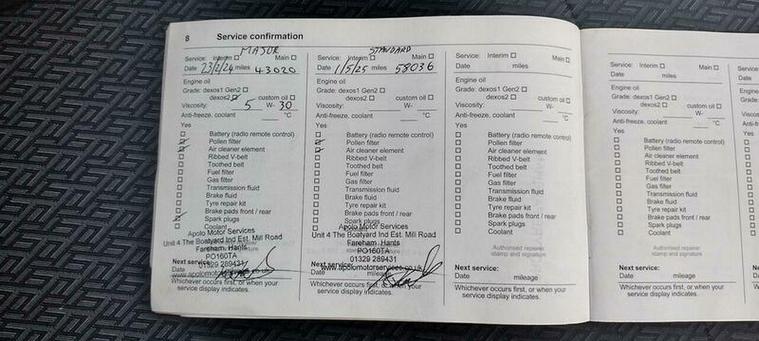 8 Service confirmation
MAJOR
Service: Interim □ Main □
Date 23/2/24 miles 43020
Engine oil
Grade: dexos1 Gen2 □
dexos2 ☑ custom oil □
Viscosity: 5 W- 30
Anti-freeze, coolant °C
Yes
□ Battery (radio remote control)
☑ Pollen filter
☑ Air cleaner element
□ Ribbed V-belt
□ Toothed belt
□ Fuel filter
□ Gas filter
□ Transmission fluid
□ Brake fluid
□ Tyre repair kit
□ Brake pads front / rear
☑ Spark plugs
□ Coolant
Apolo Motor Services
Unit 4 The Boatyard Ind Est. Mill Road
Fareham. Hants
PO160TA
01329 289431
Next service:
Date
Whichever occurs first, or when your
service display indicates.
STANDARD
Service: Interim □ Main □
Date 1/5/25 miles 58036
Engine oil
Grade: dexos1 Gen2 □
dexos2 □ custom oil □
Viscosity: W-
Anti-freeze, coolant °C
Yes
□ Battery (radio remote control)
☑ Pollen filter
☑ Air cleaner element
□ Ribbed V-belt
□ Toothed belt
□ Fuel filter
□ Gas filter
□ Transmission fluid
□ Brake fluid
□ Tyre repair kit
□ Brake pads front / rear
□ Spark plugs
Apolo Motor Services
Unit 4 The Boatyard Ind Est. Mill Road
Fareham. Hants
PO160TA
01329 289431
Next service:
www.apolomotorservices.co.uk
Date mileage
Whichever occurs first, or when your
service display indicates.
Service: Interim □ Main □
Date miles
Engine oil
Grade: dexos1 Gen2 □
dexos2 □ custom oil □
Viscosity: W-
Anti-freeze, coolant °C
Yes
□ Battery (radio remote control)
□ Pollen filter
□ Air cleaner element
□ Ribbed V-belt
□ Toothed belt
□ Fuel filter
□ Gas filter
□ Transmission fluid
□ Brake fluid
□ Tyre repair kit
□ Brake pads front / rear
□ Spark plugs
□ Coolant
Authorised repairer
stamp and signature
Next service:
Date mileage
Whichever occurs first, or when your
service display indicates.
Service: Interim □ Main □
Date miles
Engine oil
Grade: dexos1 Gen2 □
dexos2 □ custom oil □
Viscosity: W-
Anti-freeze, coolant °C
Yes
□ Battery (radio remote control)
□ Pollen filter
□ Air cleaner element
□ Ribbed V-belt
□ Toothed belt
□ Fuel filter
□ Gas filter
□ Transmission fluid
□ Brake fluid
□ Tyre repair kit
□ Brake pads front / rear
□ Spark plugs
□ Coolant
Authorised repairer
stamp and signature
Next service:
Date mileage
Whichever occurs first, or when your
service display indicates.
Date
Yes